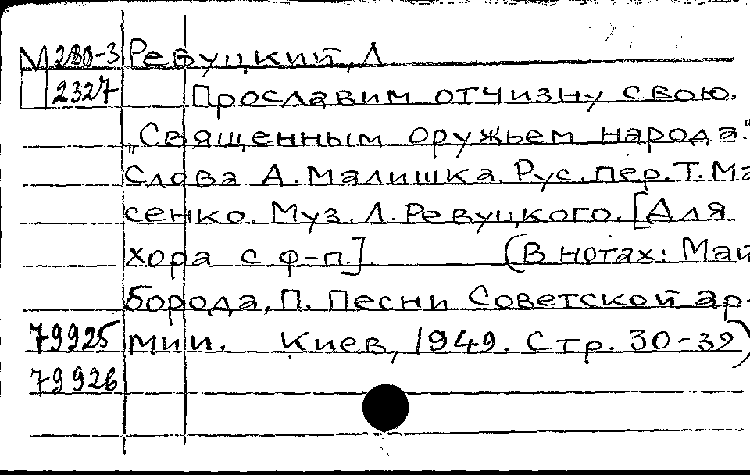 М280-3 Ревуцкий, Л
2327 Прославим отчизну свою.
"Священным оружьем народа."
Слова А. Малишка. Рус. пер. Т. Ма
сенко. Муз. Л. Ревуцкого. [Для
хора с ф-п.] (В нотах: Май
борода, П. Песни Советской ар-
79925 мии. Киев, 1949. Стр. 30-39)
79926